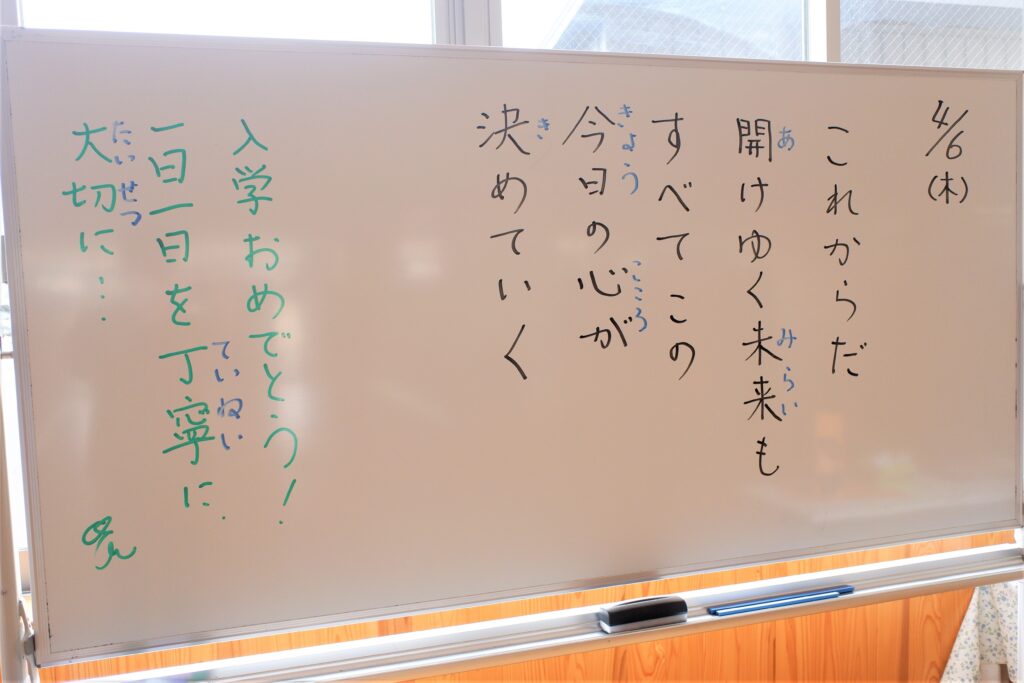 4/6(木)
これからだ
開けゆく未来も
すべてこの
今日の心が
決めていく
入学おめでとう!
一日一日を丁寧に
大切に…
あ
みらい
きょう
こころ
き
ていねい
たいせつ